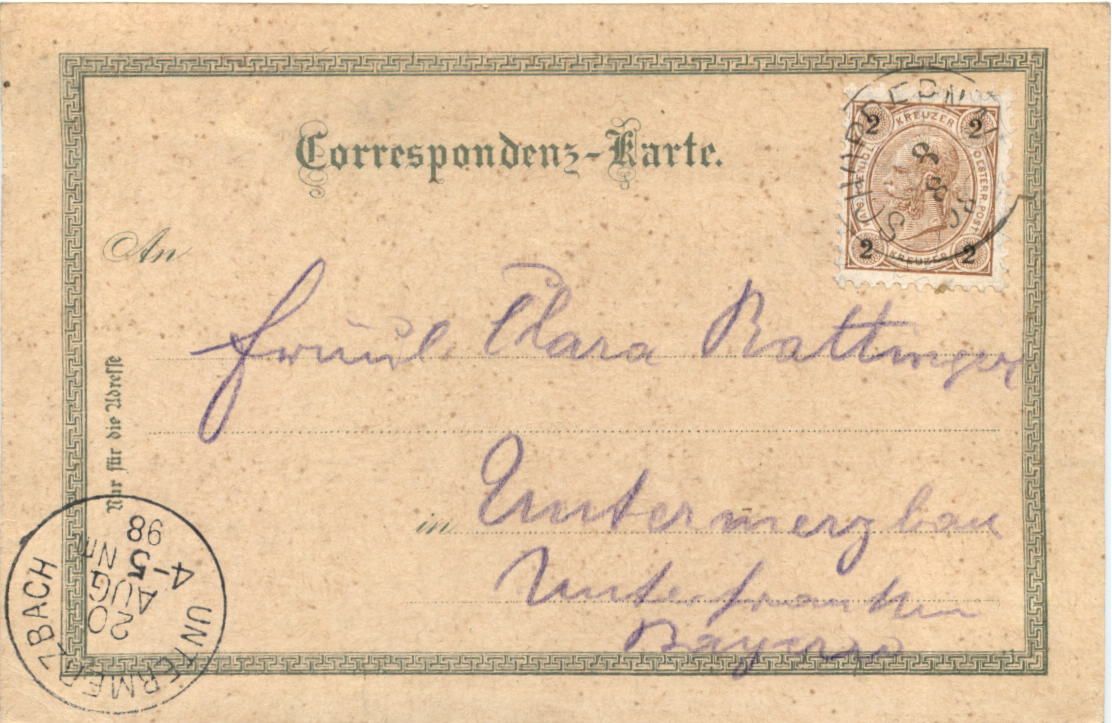 Correspondenz-Karte.
2 KREUZER 2
OESTERR. POST
2 KREUZER 2
An
Fräul. Clara Battinger
Nur für die Adresse
in Untermerzbau
Unterfranken
Bayern
UNTERMERZBACH
20
AUG
Nm
4-5
98